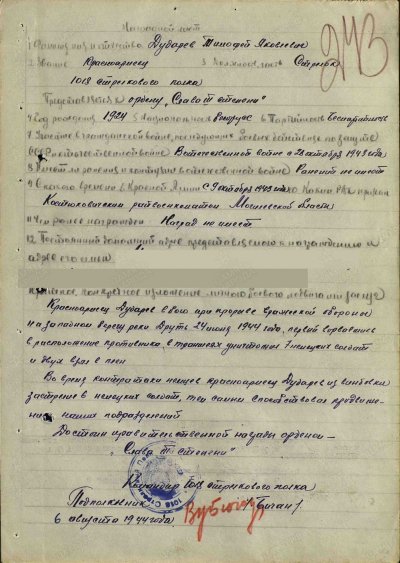 Наградной лист
1 Фамилия имя и отчество Дубарев Тимофей Яковлевич
2 Звание Красноармеец 3 Должность, часть Стрелок
1018 стрелкового полка
Представляется к ордену „Слава III степени"
4 Год рождения 1924 5 Национальность 6 Партийность Беспартийн
7 Участие в гражданской войне, последующих боевых действиях по защите
СССР и отечественной войне В отечественной войне с 28 октября 1943 года
8 Имеет ли ранения и контузии в отечественной войне Ранений не имеет
9 С какого времени в Красной Армии с 9 октября 1943 10 Каким РВК призван
Костюковским райвоенкоматом Могилевской области
11 Чем ранее награжден Наград не имеет
12 Постоянный домашний адрес представляемого к награждению и
адрес его семьи
Краткое, конкретное изложение личного боевого подвига или заслуг
Красноармеец Дубарев в бою при прорыве вражеской обороны
на западном берегу реки Друть 24 июня 1944 года, первый ворвался
в расположение противника, в траншеях уничтожил 7 немецких солдат
и двух взял в плен
Во время контратаки немцев красноармеец Дубарев из винтовки
застрелил 8 немецких солдат, тем самым способствовал продвиже-
нию наших подразделений
Достоин правительственной награды орденом —
„Слава III степени"
Командир 1018 стрелкового полка
Подполковник /Бичан/
6 августа 1944 года